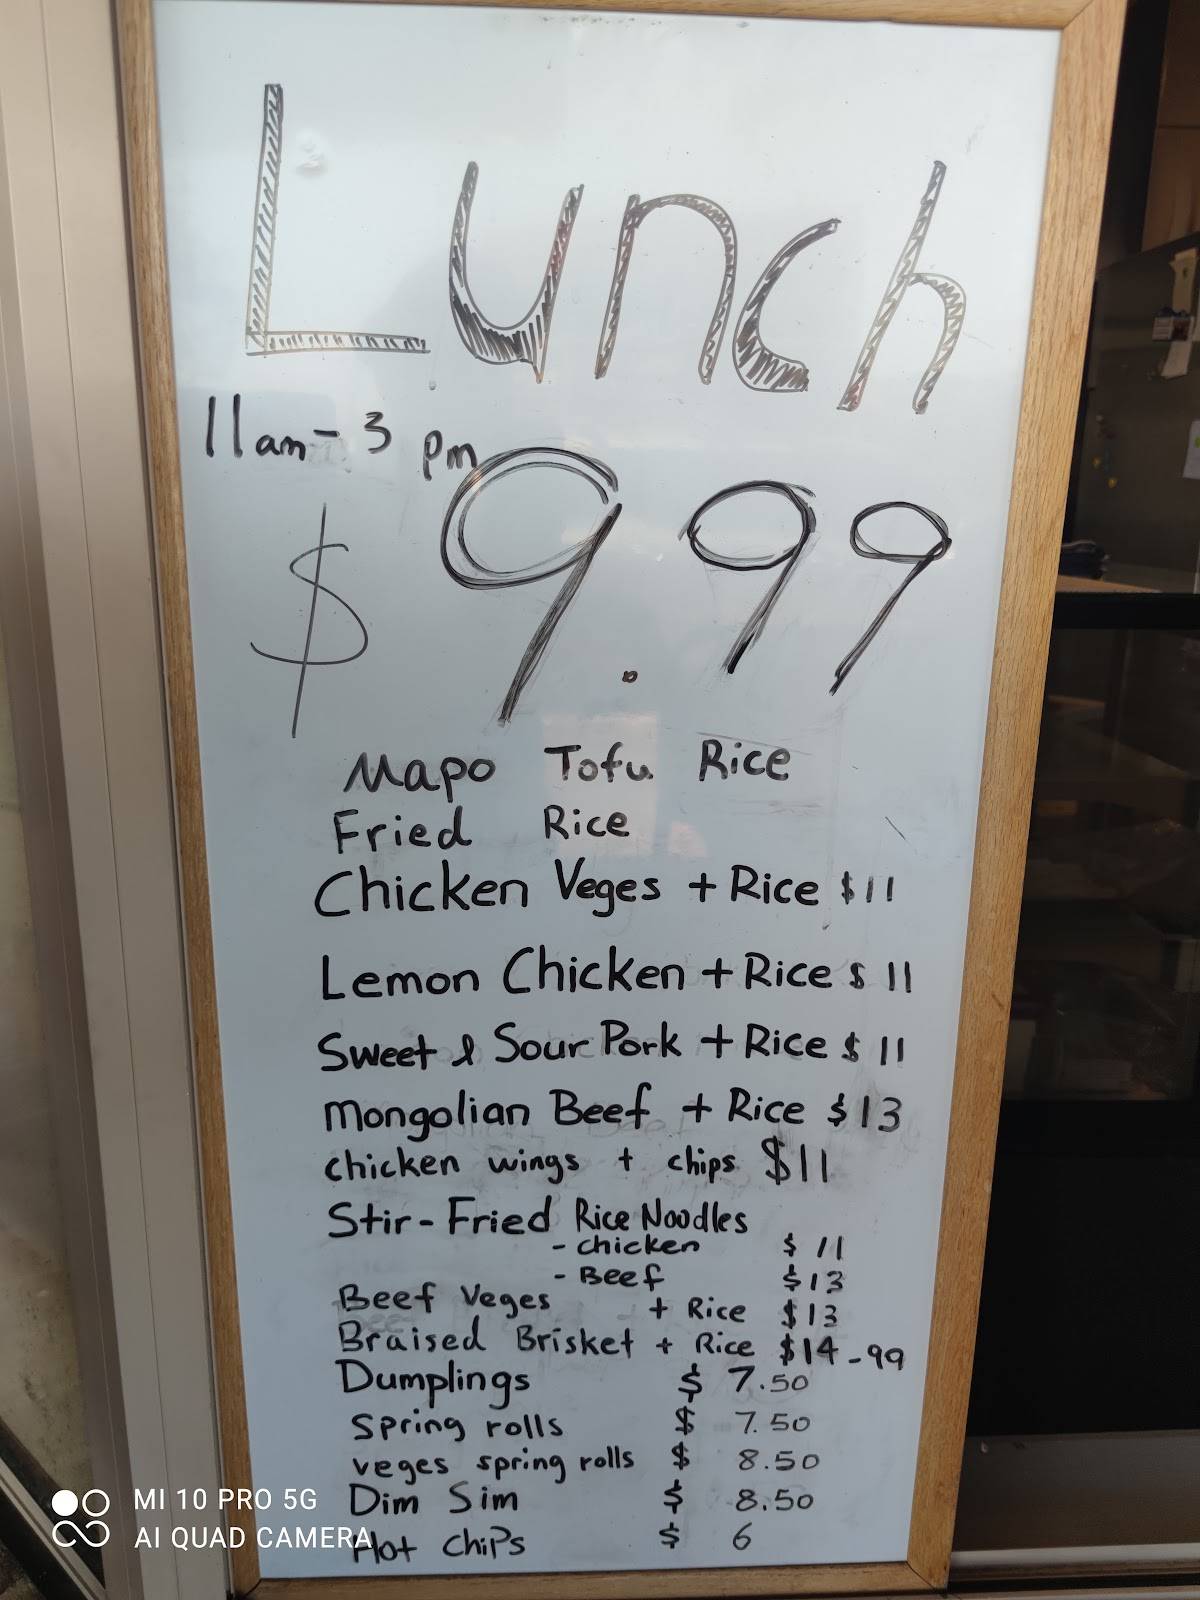 Lunch
11am - 3 pm
$ 9.99
Mapo Tofu Rice
Fried Rice
Chicken Veges + Rice $11
Lemon Chicken + Rice $ 11
Sweet & Sour Pork + Rice $ 11
Mongolian Beef + Rice $13
chicken wings + chips $11
Stir-Fried Rice Noodles
- chicken $ 11
- Beef $13
Beef Veges + Rice $13
Braised Brisket + Rice $14-99
Dumplings $ 7.50
Spring rolls $ 7.50
veges spring rolls $ 8.50
Dim Sim $ 8.50
Hot Chips $ 6
MI 10 PRO 5G
AI QUAD CAMERA